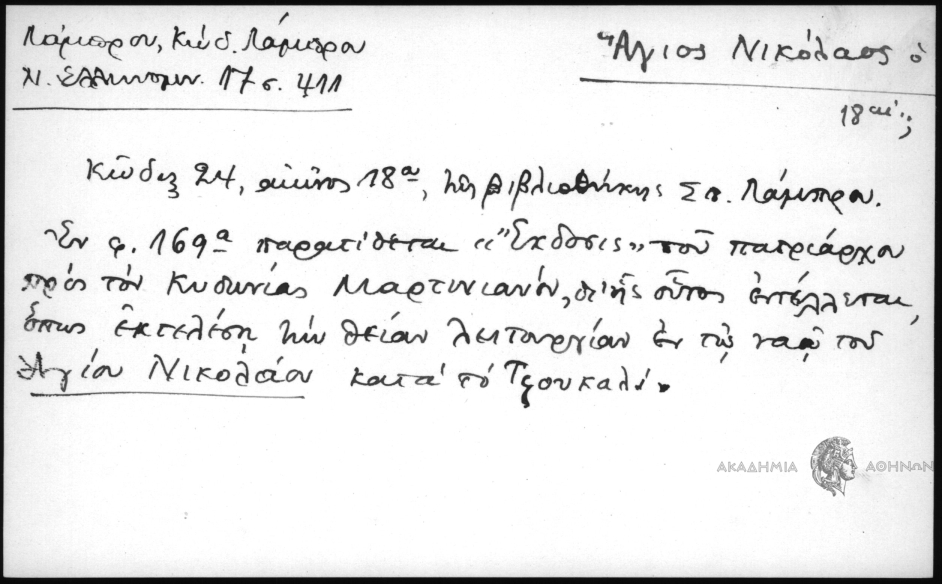 Λάμπρου, Κώδ. Λάμπρου
Ν. Ἑλληνομν. 17 σ. 411
Ἅγιος Νικόλαος ὁ
18 αἰ.;
Κῶδιξ 24, αἰῶνος 18ου, τῆς βιβλιοθήκης Σπ. Λάμπρου.
Ἐν φ. 169α παρατίθεται «Ἔκδοσις» τοῦ πατριάρχου
πρὸς τὸν Κυδωνίας Μαρτινιανόν, δι' ἧς οὗτος ἐντέλλεται,
ὅπως ἐκτελέσῃ τὴν θείαν λειτουργίαν ἐν τῷ ναῷ τοῦ
Ἁγίου Νικολάου κατὰ τὸ Τζουκαλι.
ΑΚΑΔΗΜΙΑ ΑΘΗΝΩΝ